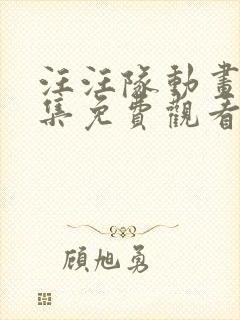 汪汪隊動畫
集免費觀看
顧旭勇